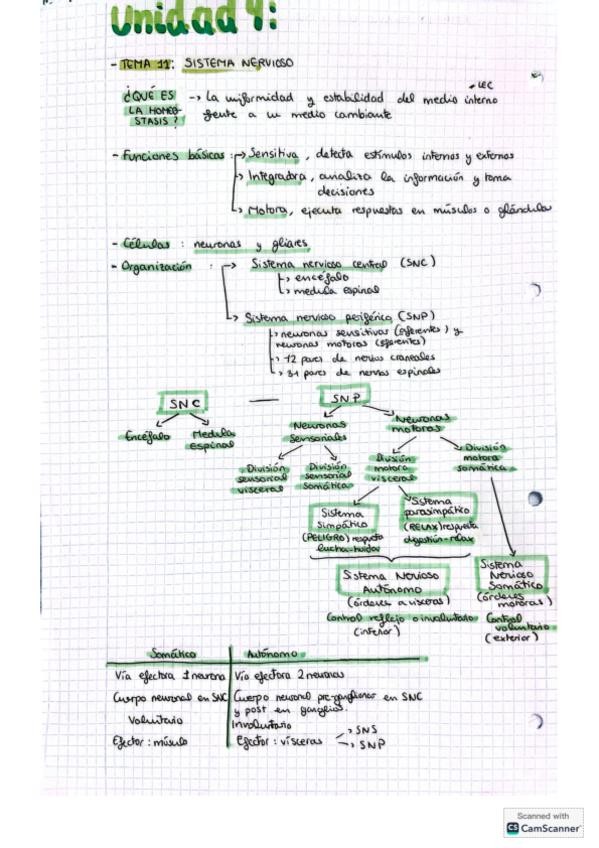 Unidad 4:
- TEMA 11: SISTEMA NERVIOSO
→ LEC
¿QUÉ ES LA HOMEOSTASIS? -> La uniformidad y estabilidad del medio interno
frente a un medio cambiante
- Funciones básicas: → Sensitiva, detecta estímulos internos y externos
↳ Integradora, analiza la información y toma
decisiones
↳ Motora, ejecuta respuestas en músculos o glándulas
- Células: neuronas y gliares
- Organización : → Sistema nervioso central (SNC)
↳ encéfalo
↳ medula espinal
↳ Sistema nervioso periférico (SNP)
↳ neuronas sensitivas (aferentes) y
neuronas motoras (eferentes)
↳ 12 pares de nervios craneales
↳ 31 pares de nervios espinales
SNC — SNP
Encéfalo Medula
Espinal
Neuronas
Sensoriales
Neuronas
motoras
División
sensorial
visceral
División
sensorial
Somática
División
motora
visceral
División
motora
somática
Sistema
Simpático
(PELIGRO) respuesta
lucha-huida
Sistema
parasimpático
(RELAX) respuesta
digestión-relax
Sistema Nervioso
Autónomo
(órdenes a vísceras)
Control reflejo o involuntario
(interior)
Sistema
Nervioso
Somático
(órdenes
motoras)
Control
voluntario
(exterior)
Somático Autónomo
Vía efectora 1 neurona Vía efectora 2 neuronas
Cuerpo neuronal en SNC Cuerpo neuronal pre-ganglionar en SNC
y post en ganglios.
Voluntario Involuntario
Efector: músculo Efector: vísceras → SNS
→ SNP
Scanned with
CS CamScanner